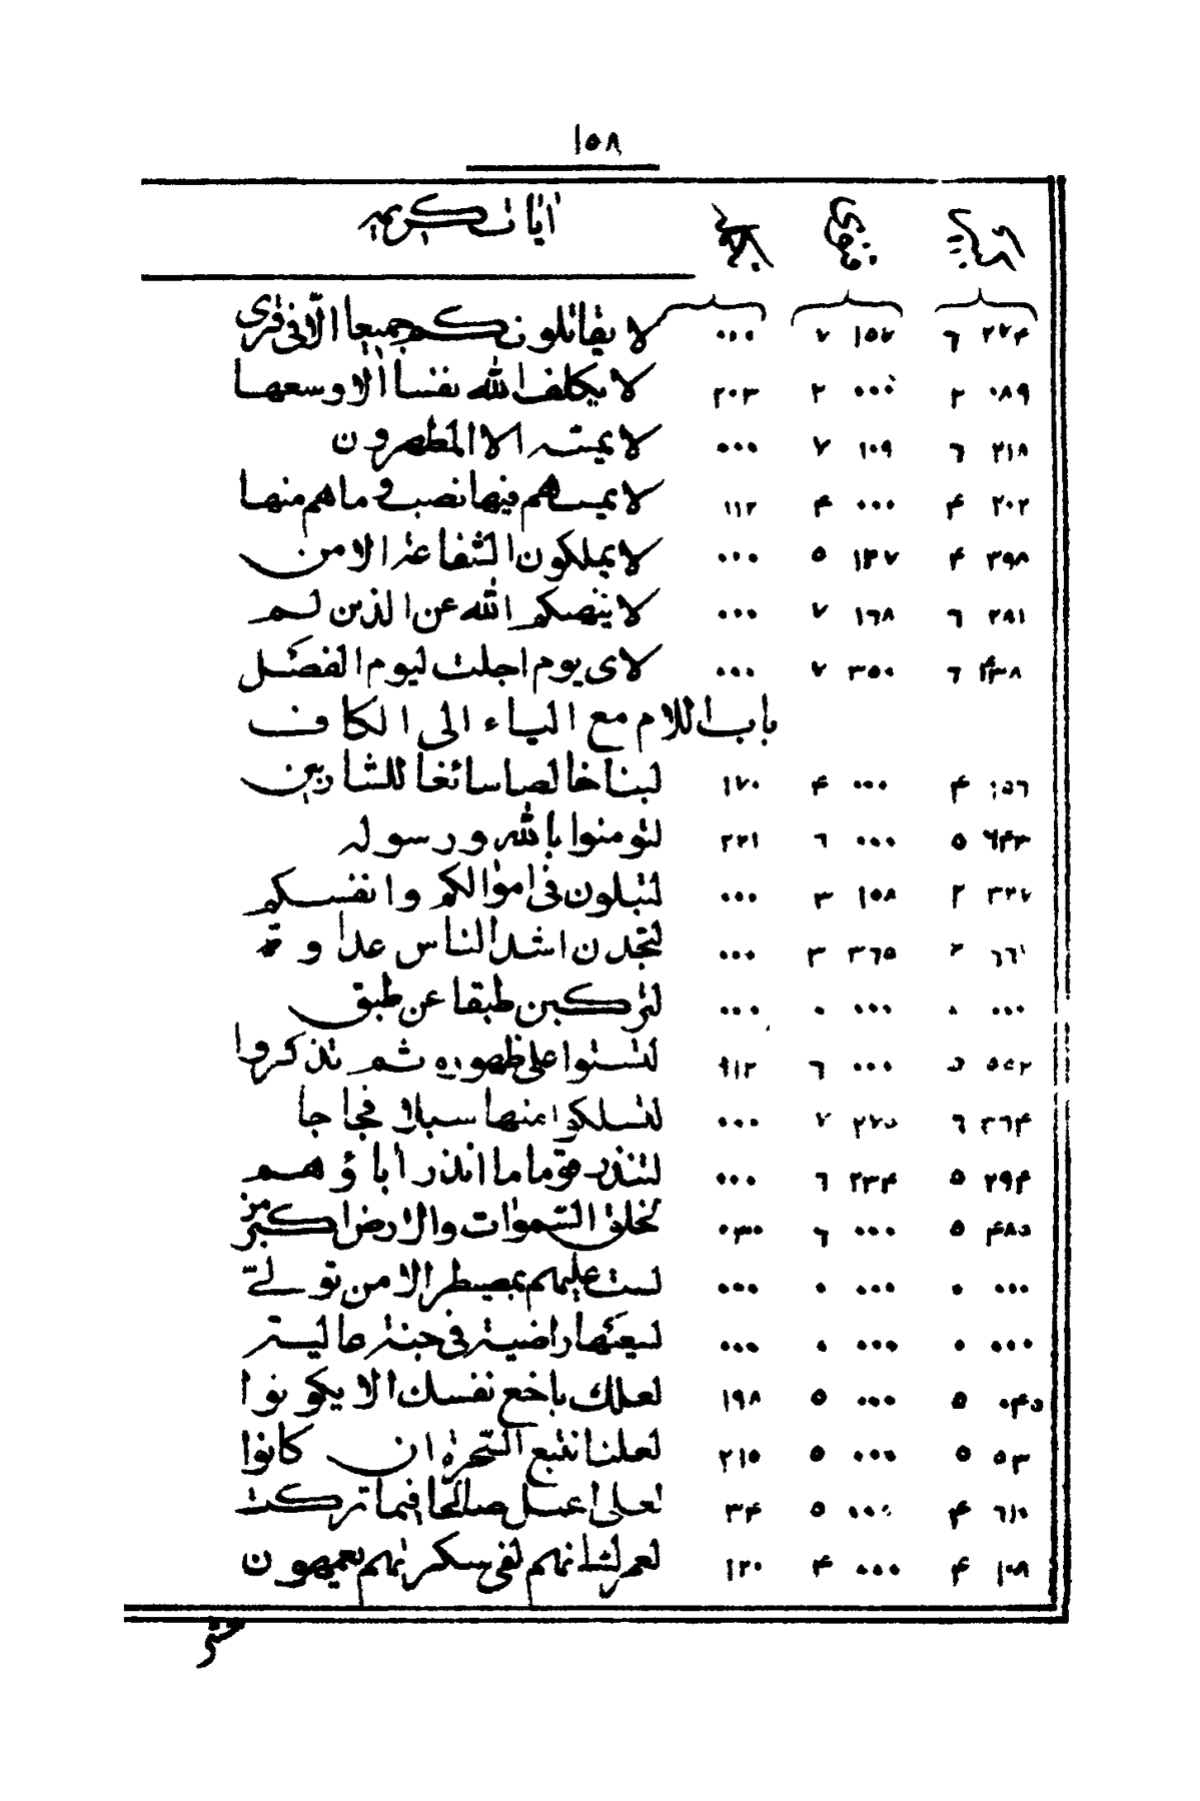 ١٥٨
اٰیات کریمہ
٢٧۴ ٦ ١٥٧ ٧ ٠٠٠ لا یقاتلونکم جمیعا الّا فی قری
٠٨٩ ٢ ٠٠٠ ٢ ٢٠٣ لا یکلف اللّٰه نفسا الا وسعها
٢١٨ ٦ ١٠٩ ٧ ٠٠٠ لا یمسّہ الا المطهرون
٢٠٢ ۴ ٠٠٠ ۴ ١١٢ لا یمسهم فیها نصب و ما هم منها
٣٩٨ ۴ ١٣٧ ٥ ٠٠٠ لا یملکون الشفاعة الا من
٢٨١ ٦ ١٦٨ ٧ ٠٠٠ لا ینهیکم اللّٰه عن الذین لم
۴٣٨ ٦ ٣٥٠ ٧ ٠٠٠ لای یوم اجلت لیوم الفصل
باب اللام مع الیاء الی الکاف
١٥٦ ۴ ٠٠٠ ۴ ١٧٠ لبنا خالصا سائغا للشاربین
٦۴٣ ٥ ٠٠٠ ٦ ٢٢١ لتومنوا باللّٰه و رسولہ
٣٢٧ ٢ ١٥٨ ٣ ٠٠٠ لتبلون فی اموالکم و انفسکم
٦٦١ ٢ ٣٦٥ ٣ ٠٠٠ لتجدن اشد الناس عداوة
٠٠٠ ٠ ٠٠٠ ٠ ٠٠٠ لترکبن طبقا عن طبق
٥٥٢ ٥ ٠٠٠ ٦ ٩١٢ لتستوا علی ظهوره ثم تذکروا
٣٦۴ ٦ ٢٧٥ ٧ ٠٠٠ لتسلکوا منها سبلا فجاجا
٢٩۴ ٥ ٢٣۴ ٦ ٠٠٠ لتنذر قوما ما انذر اباؤهم
۴٨٥ ٥ ٠٠٠ ٦ ٠٣٠ لخلق السّموات والارض اکبر من
٠٠٠ ٠ ٠٠٠ ٠ ٠٠٠ لست علیهم بمصیطر الا من تولّی
٠٠٠ ٠ ٠٠٠ ٠ ٠٠٠ لسعیها راضیة فی جنة عالیة
٠۴٥ ٥ ٠٠٠ ٥ ١٩٨ لعلك باخع نفسك الا یکونوا
٥٣ ٥ ٠٠٠ ٥ ٢١٥ لعلنا نتبع السّحرة ان کانوا
٦١٠ ۴ ٠٠٠ ٥ ٣۴ لعلی اعمل صالحا فیما ترکت
١٠٨ ۴ ٠٠٠ ۴ ١٢٠ لعمرك انهم لفی سکرتهم یعمهون